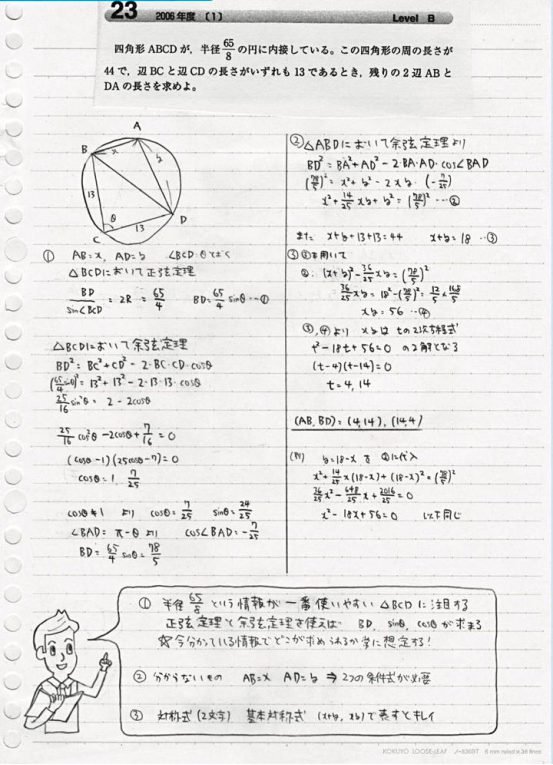 23
2006年度 〔1〕
Level B
四角形ABCDが，半径65/8の円に内接している。この四角形の周の長さが
44で，辺BCと辺CDの長さがいずれも13であるとき，残りの2辺ABと
DAの長さを求めよ。
A
B
x
y
13
θ
13
C
D
① AB=x, AD=y ∠BCD=θとおく
△BCDにおいて正弦定理
BD/sin∠BCD = 2R = 65/4 BD=65/4 sinθ…①
△BCDにおいて余弦定理
BD²=BC²+CD²-2・BC・CD・cosθ
(65/4 sinθ)²=13²+13²-2・13・13・cosθ
25/16 sin²θ= 2-2cosθ
25/16 cos²θ-2cosθ+7/16=0
(cosθ-1)(25cosθ-7)=0
cosθ=1, 7/25
cosθ≠1 より cosθ=7/25 sinθ=24/25
∠BAD=π-θ より cos∠BAD=-7/25
BD=65/4 sinθ=78/5
② △ABDにおいて余弦定理より
BD²=BA²+AD²-2・BA・AD・cos∠BAD
(78/5)²=x²+y²-2xy・(-7/25)
x²+14/25 xy+y²=(78/5)²…②
また x+y+13+13=44 x+y=18…③
③ ②を用いて
②: (x+y)²-36/25 xy=(78/5)²
36/25 xy=18²-(78/5)²=12/5×168/5
xy=56…④
③,④より x,yは tの2次方程式
t²-18t+56=0 の2解となる
(t-4)(t-14)=0
t=4, 14
(AB, BD)=(4,14), (14,4)
(別) y=18-x を ②に代入
x²+14/25 x(18-x)+(18-x)²=(78/5)²
36/25 x²-648/25 x+2016/25=0
x²-18x+56=0 以下同じ
① 半径65/8という情報が一番使いやすい△BCDに注目する
正弦定理と余弦定理を使えば BD, sinθ, cosθが求まる
☆今分かっている情報でどこが求められるか常に想定する!
② 分からないもの AB=x AD=y ⇒ 2つの条件式が必要
③ 対称式(2文字) 基本対称式 (x+y, xy)で表すとキレイ
KOKUYO LOOSE-LEAF ノ-836BT 6 mm ruled x 36 lines